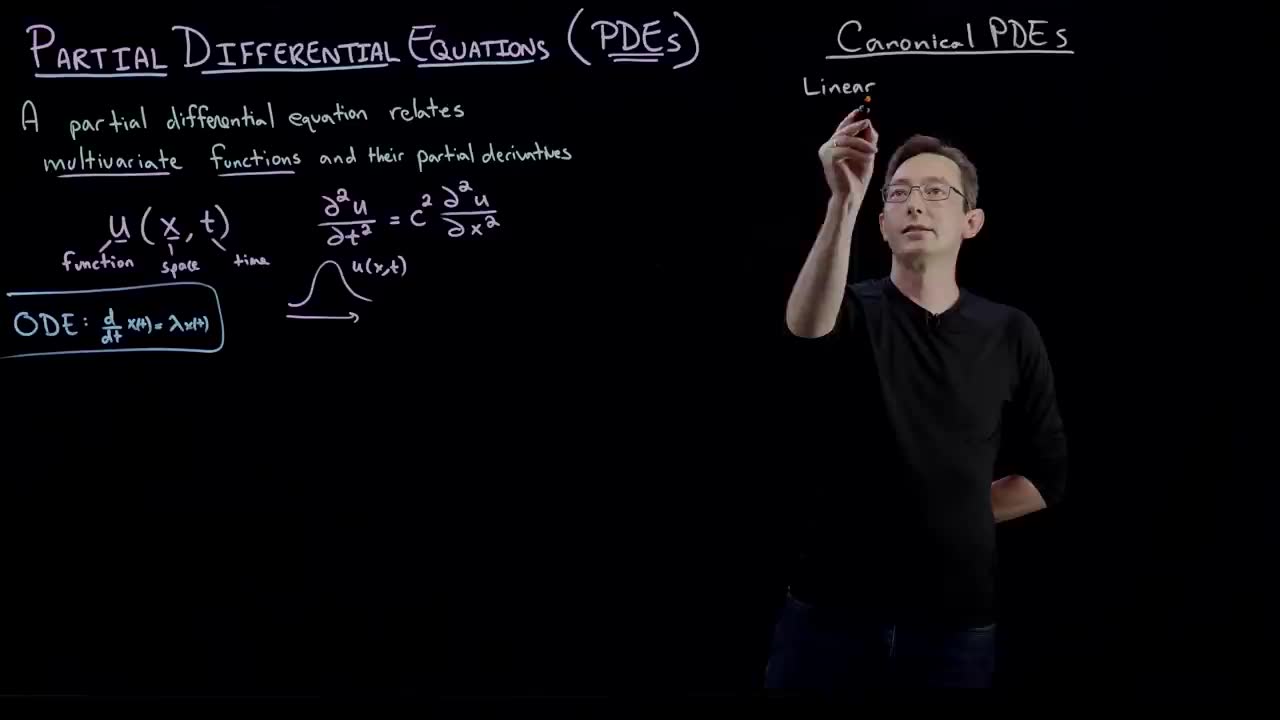 PARTIAL DIFFERENTIAL EQUATIONS (PDEs)
A partial differential equation relates
multivariate functions and their partial derivatives
u(x,t)
function space time
∂²u/∂t² = c² ∂²u/∂x²
u(x,t)
ODE: d/dt x(t) = λx(t)
Canonical PDEs
Linear